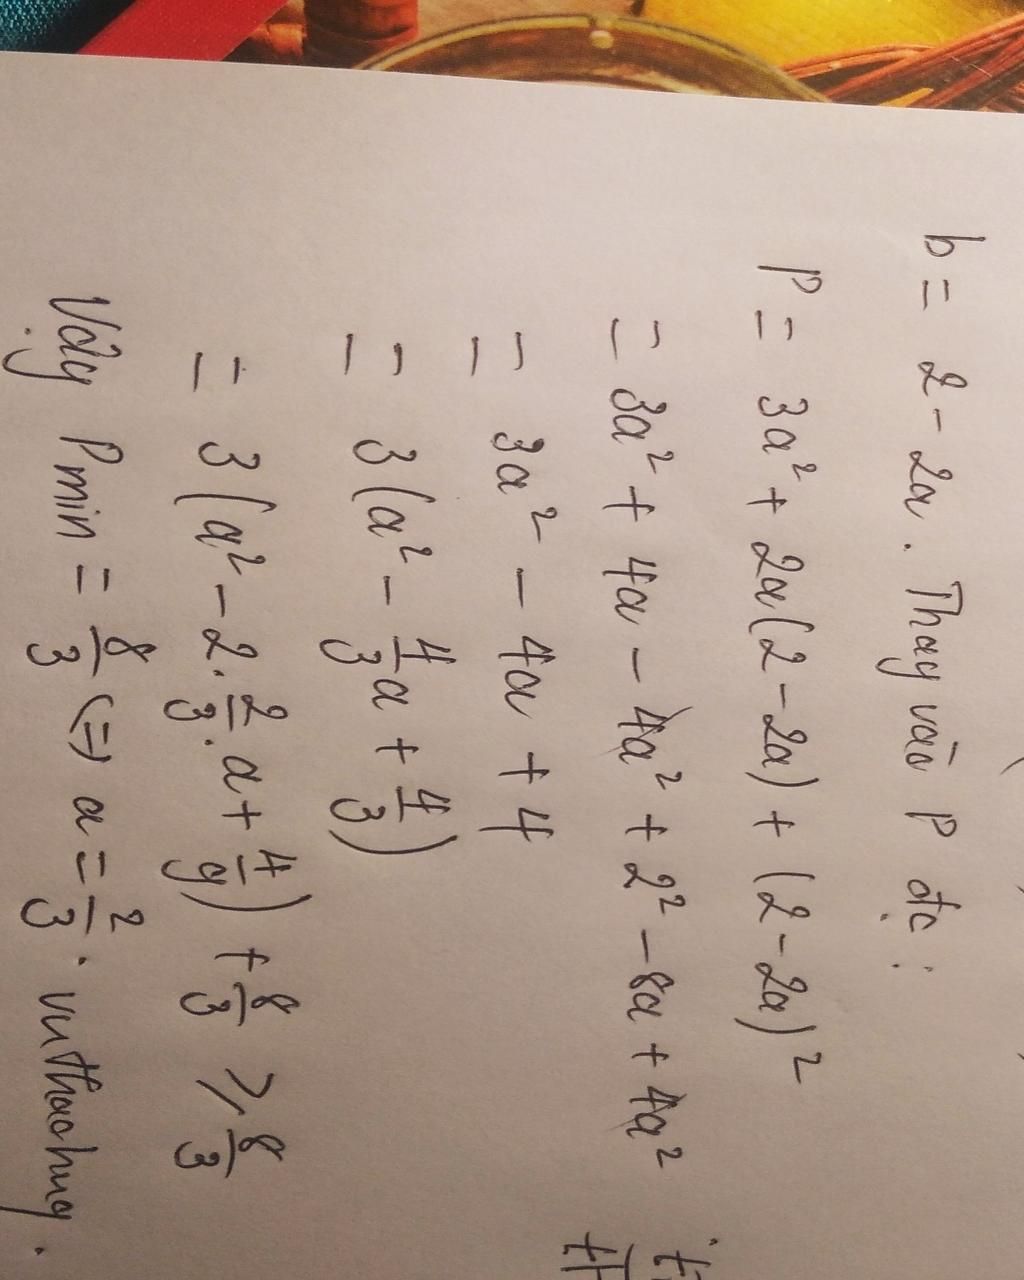 b = 2 - 2a. Thay vào P đc:
P = 3a² + 2a(2 - 2a) + (2 - 2a)²
= 3a² + 4a - 4a² + 2² - 8a + 4a²
= 3a² - 4a + 4
= 3(a² - 4/3 a + 4/3)
= 3(a² - 2. 2/3 . a + 4/9) + 8/3 ≥ 8/3
Vậy Pmin = 8/3 (=) a = 2/3. vuthaohuy.